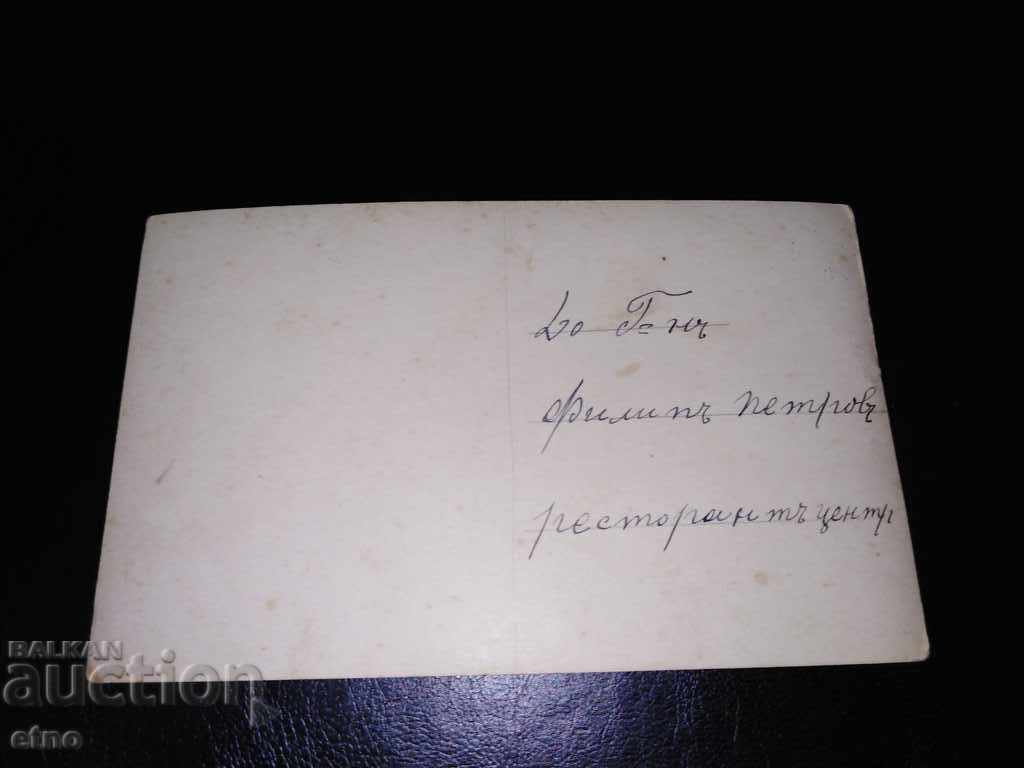 До Г-нъ
Филипъ Петровъ
ресторантъ центр
BALKAN
auction
etno